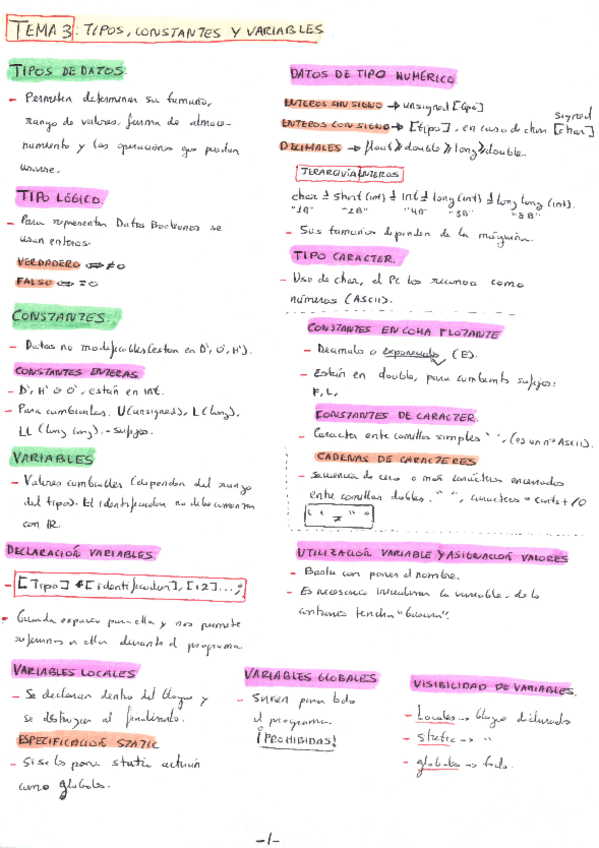 TEMA 3: TIPOS, CONSTANTES Y VARIABLES
TIPOS DE DATOS.
- Permiten determinar su tamaño,
rango de valores, forma de almace-
namiento y las operaciones que puedan
usarse.
TIPO LÓGICO.
- Para representar Datos Booleanos se
usan enteros.
VERDADERO ⇔ ≠0
FALSO ⇔ =0
DATOS DE TIPO NUMÉRICO.
ENTEROS SIN SIGNO → unsigned [tipo]
ENTEROS CON SIGNO → [tipo], en caso de char signed [char]
DECIMALES → float ≫ double ≫ long ≫ double.
JERARQUÍA ENTEROS
char ≤ short (int) ≤ int ≤ long (int) ≤ long long (int).
"1B" "2B" "4B" "8B" "8B"
- Sus tamaños dependen de la máquina.
TIPO CARACTER.
- Uso de char, el PC los reconoce como
números (ASCII).
CONSTANTES.
- Datos no modificables (están en D', O', H').
CONSTANTES ENTERAS.
- D', H' o O', están en int.
- Para cambiarlas: U (unsigned), L (long),
LL (long long). - sufijos.
CONSTANTES EN COMA FLOTANTE
- Decimales o exponenciales (E).
- Están en double, para cambiarlo sufijos:
F, L,
CONSTANTES DE CARACTER.
- Caracter entre comillas simples ' ', (es un nº ASCII).
CADENAS DE CARACTERES
- Secuencia de cero o más caracteres encerrados
entre comillas dobles. " ", caracteres +/0
' ' ≠ " "
VARIABLES
- Valores cambiables (dependen del rango
del tipo). El identificador no debe comenzar
con
DECLARACIÓN VARIABLES.
- [Tipo] [identificador], [i2]...;
- Guarda espacio para ella y nos permite
referirnos a ella durante el programa.
UTILIZACIÓN VARIABLE Y ASIGNACIÓN VALORES
- Basta con poner el nombre.
- Es necesario inicializar la variable, de lo
contrario tendrá "basura".
VARIABLES LOCALES
- Se declaran dentro del bloque y
se destruyen al finalizarlo.
ESPECIFICACIÓN STATIC
- Si se les pone static actúan
como globales.
VARIABLES GLOBALES
- Sirven para todo
el programa.
¡PROHIBIDAS!
VISIBILIDAD DE VARIABLES.
- Locales → bloque declarado
- Static → "
- globales → todo.
-1-